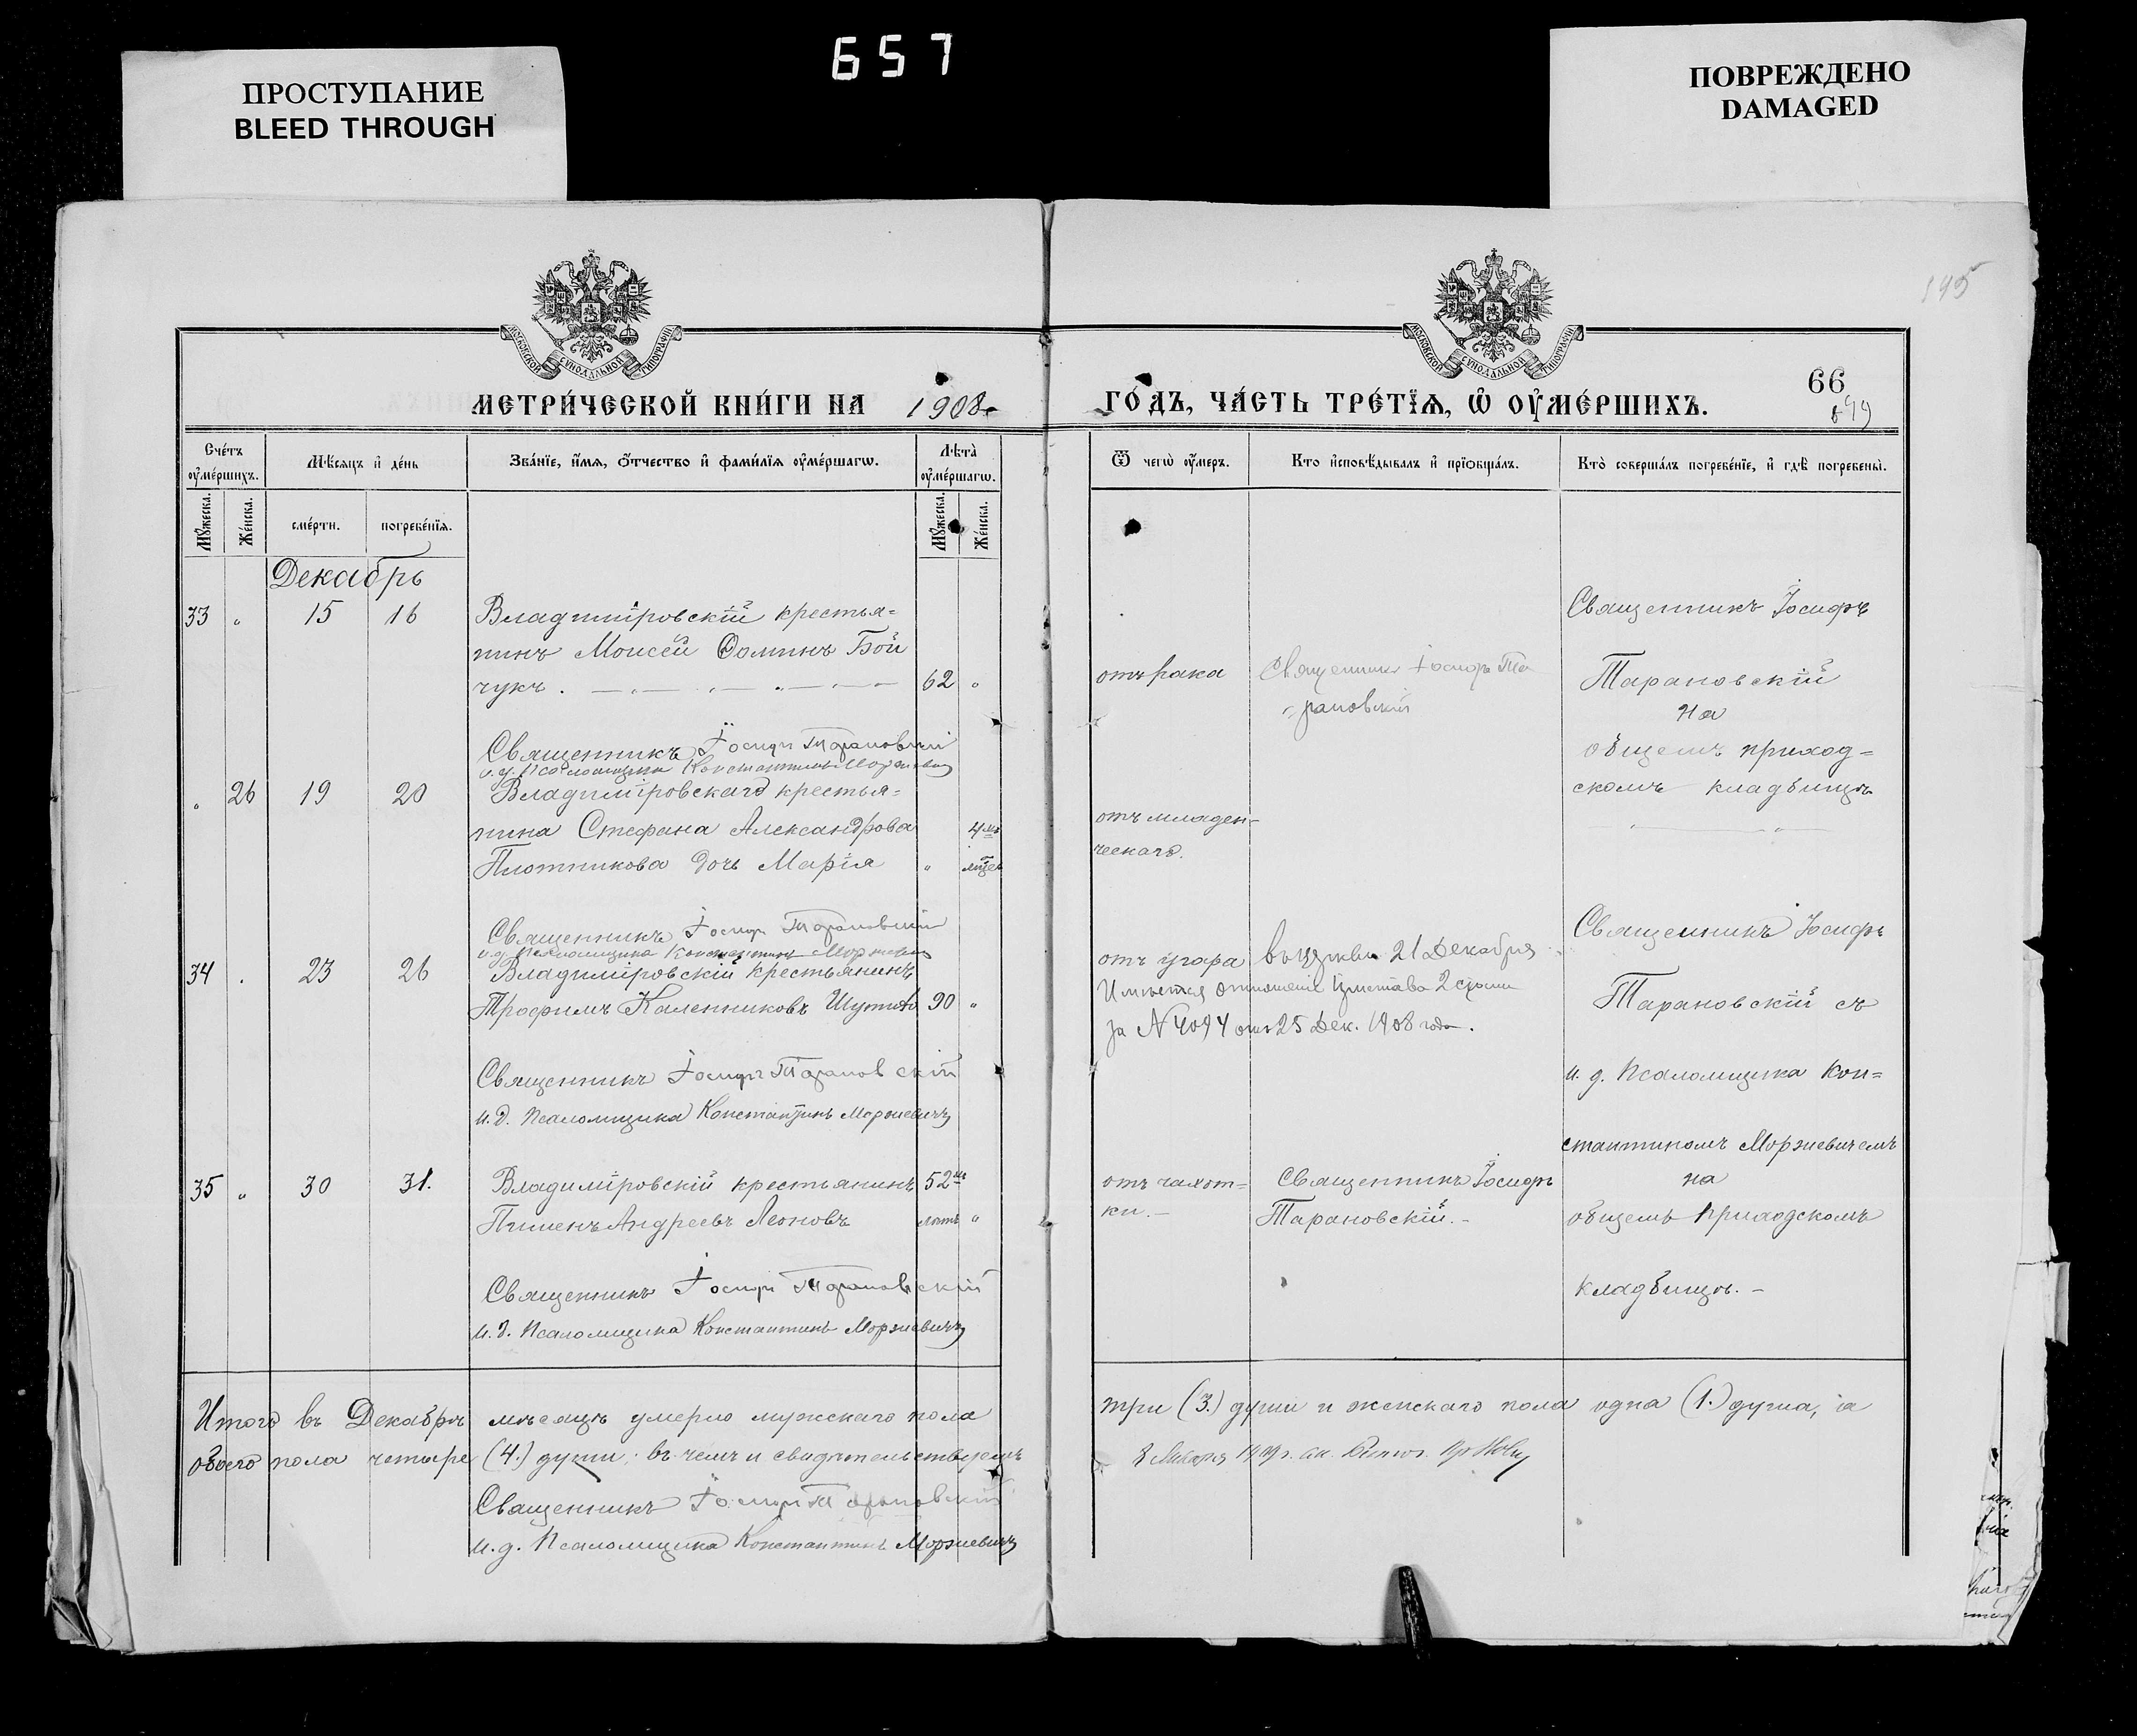 657
ПРОСТУПАНИЕ
BLEED THROUGH
ПОВРЕЖДЕНО
DAMAGED
МОСКОВСКОЙ СѴНОДАЛЬНОЙ ТИПОГРАФІИ
МОСКОВСКОЙ СѴНОДАЛЬНОЙ ТИПОГРАФІИ
66
МЕТРИ́ЧЕСКОЙ КНИ́ГИ НА 1908
ГО́ДЪ, ЧА́СТЬ ТРЕ́ТЇѦ, Ѡ ОУ҆МЕ́РШИХЪ.
Сче́тъ оу҆ме́ршихъ.
Мѣ́сяцъ и҆ де́нь
Зва́нїе, и҆́мя, ѻ҆́тчество и҆ фами́лїя оу҆ме́ршагѡ.
Лѣ́та̀ оу҆ме́ршагѡ.
Ѿ чегѡ̀ оу҆́меръ.
Кто̀ и҆сповѣ́дывалъ и҆ прїѡбща́лъ.
Кто̀ соверша́лъ погребе́нїе, и҆ гдѣ̀ погребены̀.
Мꙋ́жеска.
Же́нска.
сме́рти.
погребе́нїя.
Мꙋ́жеска.
Же́нска.
Декабрь
33 " 15 16 Владимїровскій крестья=
нинъ Моисей Ѳоминъ Бой
чукъ. 62 "
отъ рака
Священникъ Іосифъ Та
рановскій
Священникъ Іосифъ
Тарановскій
на
общемъ приход=
скомъ кладбищѣ
Священникъ Іосифъ Тарановскій
и.д. Псаломщика Константинъ Моржевичъ
" 26 19 20 Владимїровскаго крестья=
нина Стефана Александрова 4
Плотникова дочь Марія "
отъ младен-
ческаго.
Священникъ Іосифъ Тарановскій
и.д. Псаломщика Константинъ Моржевичъ
34 . 23 26 Владимїровскій крестьянинъ
Трофимъ Каленниковъ 90 "
отъ угара
21 Декабря
Имѣется отношеніе Пристава 2
за № 4094 отъ 25 Дек. 1908 года.
Священникъ Іосифъ
Тарановскій съ
и. д. Псаломщика Кон=
стантиномъ Моржевичемъ
на
общемъ приходскомъ
кладбищѣ. -
Священникъ Іосифъ Тарановскій
и.д. Псаломщика Константинъ Моржевичъ
35 " 30 31. Владимїровскій крестьянинъ 52
Пименъ Андреевъ Леоновъ лѣтъ "
отъ чахот=
ки. -
Священникъ Іосифъ
Тарановскій. -
Священникъ Іосифъ Тарановскій
и.д. Псаломщика Константинъ Моржевичъ
Итого въ Декабрѣ мѣсяцѣ умерло мужскаго пола три (3.) души и женскаго пола одна (1.) душа, а
обоего пола четыре (4.) души; въ чемъ и свидѣтельствуемъ
Священникъ Іосифъ Тарановскій
и.д. Псаломщика Константинъ Моржевичъ